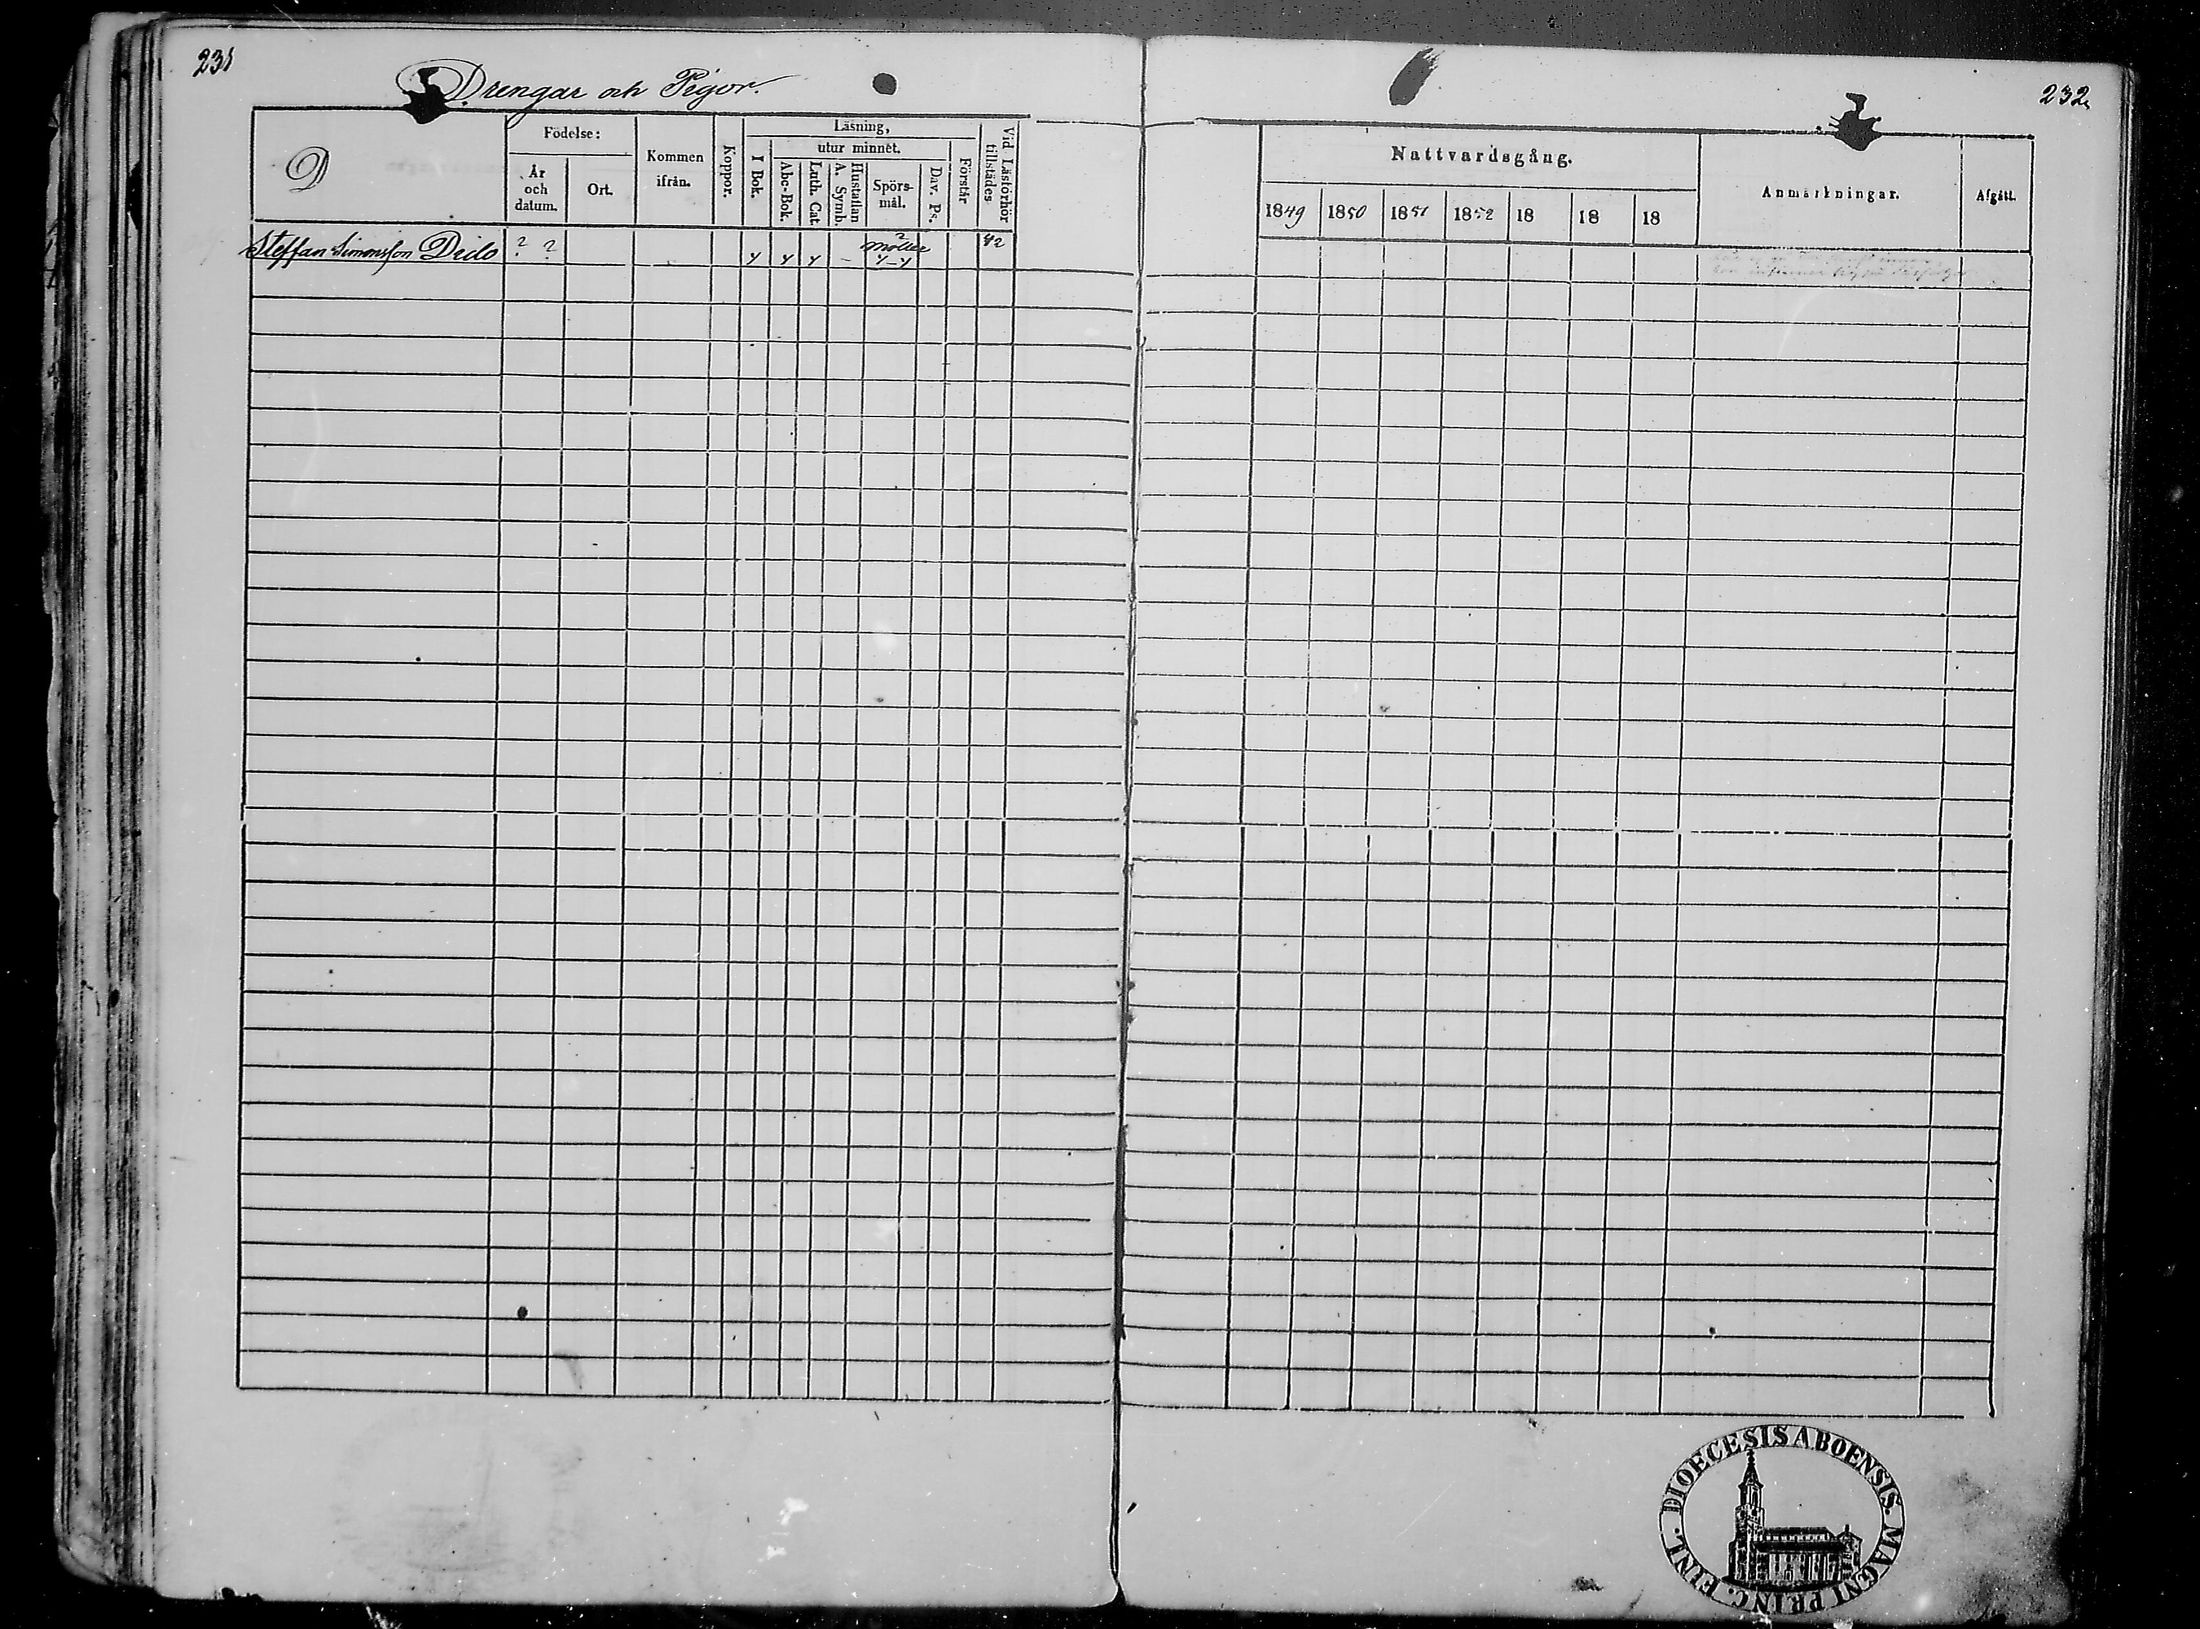 231
Drengar och Pigor.
D
Födelse:
År
och
datum.
Ort.
Kommen
ifrån.
Koppor.
Läsning,
utur minnet.
I Bok.
Abc-Bok.
Luth. Cat.
Hustaflan
A. Symb.
Spörs-
mål.
Dav. Ps.
Förstår
Vid Läsförhör
tillstädes
Steffan Simonsson Dido ? ? 42
232
Nattvardsgång.
1849 1850 1851 1852 18 18 18
Anmärkningar.
Afgått.
DIOECESIS ABOENSIS. MAGNI PRINC. FINL.